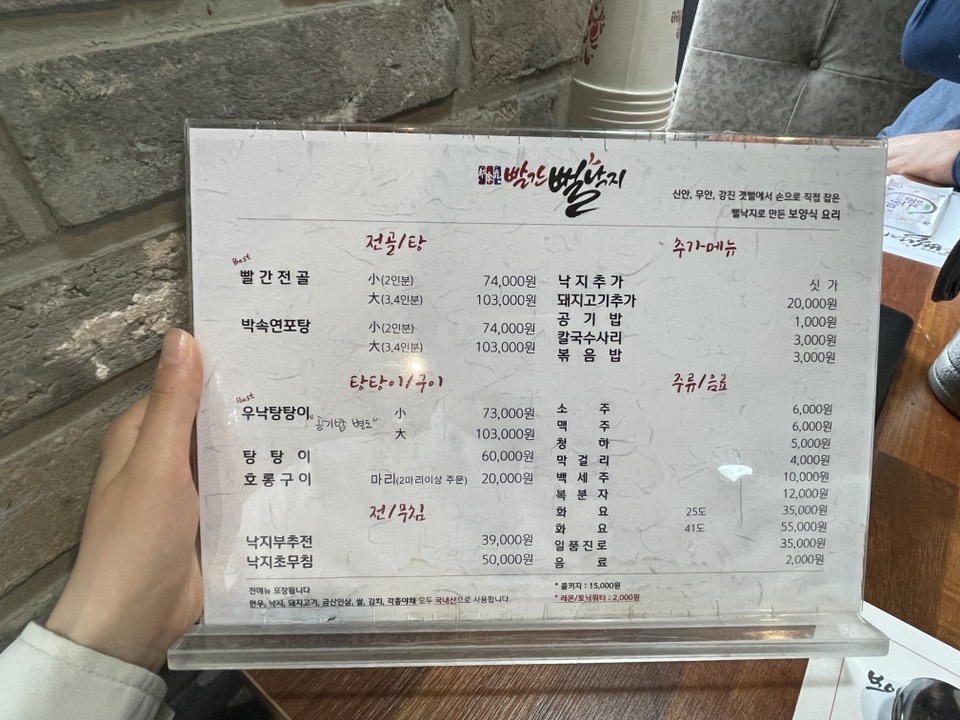 빨간뻘낙지
신안, 무안, 강진 갯뻘에서 손으로 직접 잡은
뻘낙지로 만든 보양식 요리
전골/탕
Best
빨간전골 小(2인분) 74,000원
大(3,4인분) 103,000원
박속연포탕 小(2인분) 74,000원
大(3,4인분) 103,000원
탕탕이/구이
Best
우낙탕탕이 "공기밥 별도" 小 73,000원
大 103,000원
탕탕이 60,000원
호롱구이 마리(2마리이상 주문) 20,000원
전/무침
낙지부추전 39,000원
낙지초무침 50,000원
추가메뉴
낙지추가 싯가
돼지고기추가 20,000원
공기밥 1,000원
칼국수사리 3,000원
볶음밥 3,000원
주류/음료
소주 6,000원
맥주 6,000원
청하 5,000원
막걸리 4,000원
백세주 10,000원
복분자 12,000원
화요 25도 35,000원
화요 41도 55,000원
일품진로 35,000원
음료 2,000원
전메뉴 포장됩니다
한우, 낙지, 돼지고기, 금산인삼, 쌀, 김치, 각종야채 모두 국내산으로 사용합니다.
* 콜키지 : 15,000원
* 레몬/토닉워터 : 2,000원